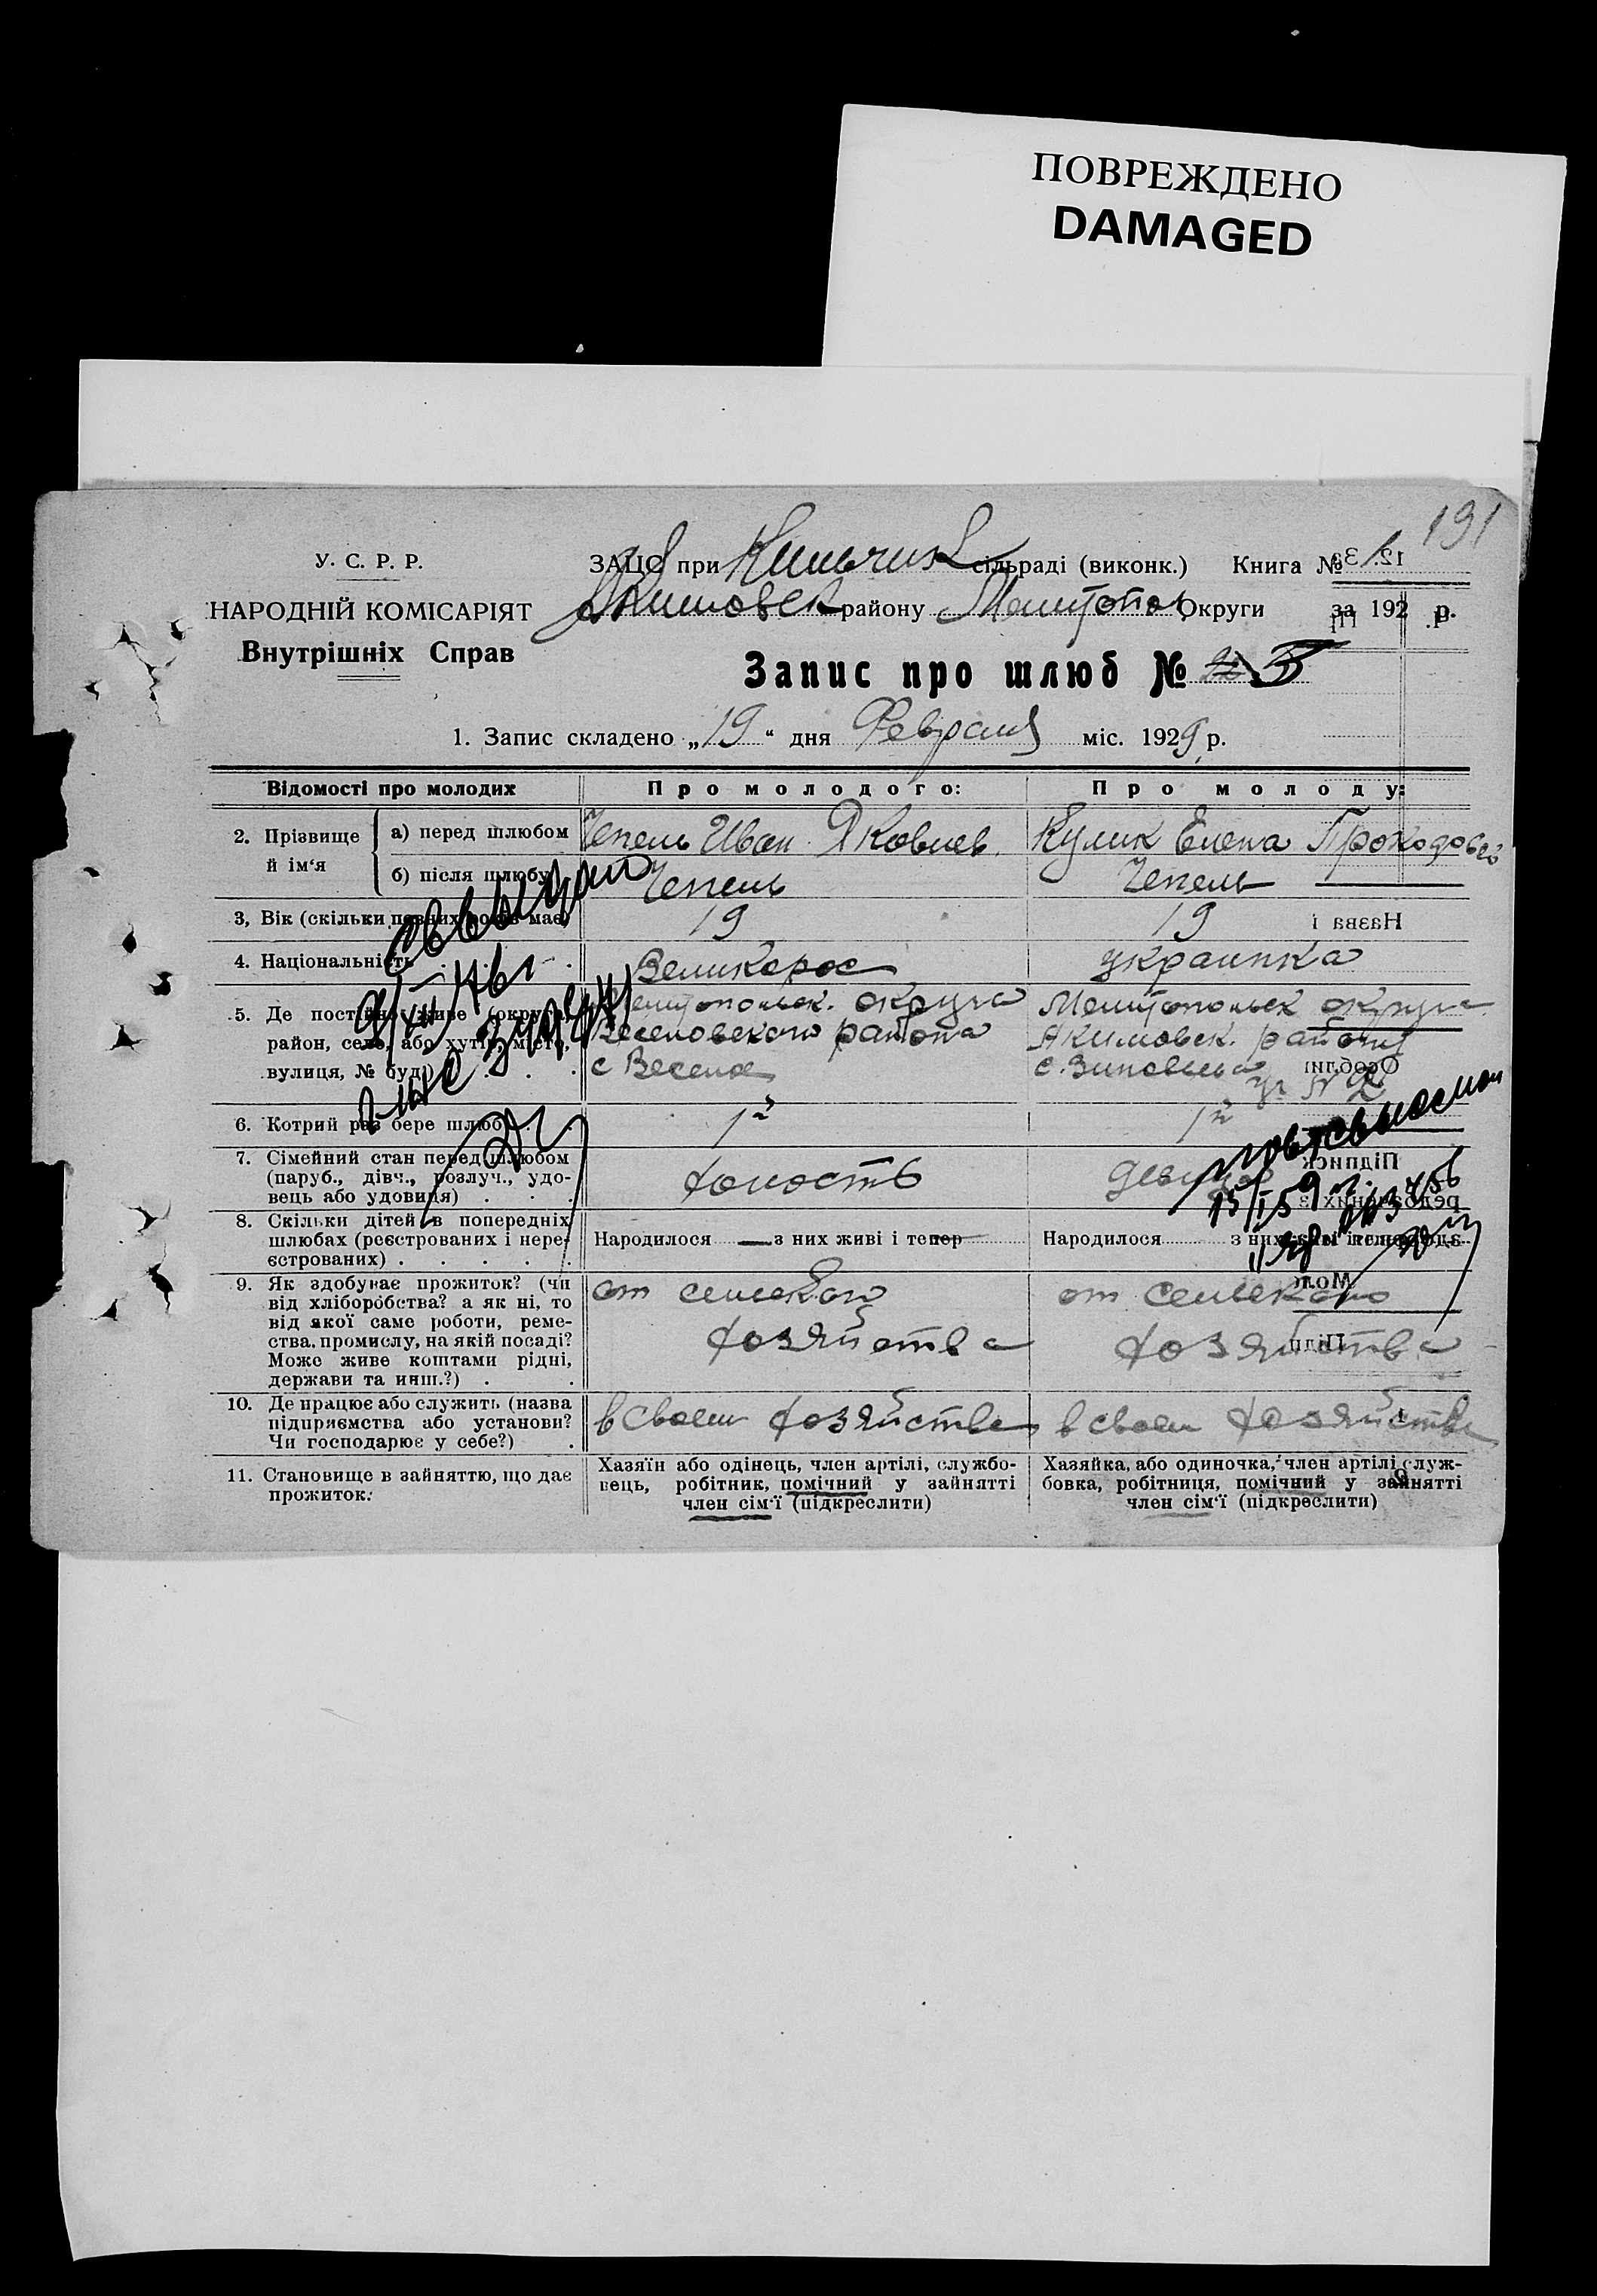 ПОВРЕЖДЕНО
DAMAGED
191
У. С. Р. Р.
НАРОДНІЙ КОМІСАРІЯТ
Внутрішніх Справ
ЗАЦС при сільраді (виконк.) Книга №
Акимовск району Мелитопол Округи за 192 р.
Запис про шлюб № 5
1. Запис складено „19“ дня Февраля міс. 1929 р.
Відомості про молодих Про молодого: Про молоду:
2. Прізвище й ім‘я
а) перед шлюбом Чепель Иван Яковлев. Кулик Елена
б) після шлюбу Чепель Чепель
3, Вік (скільки певних років має) 19 19
4. Національність Великорос украинка
5. Де постійно живе (округа, район, село, або хутір, місто, вулиця, № буд.)
Мелитопольск. округа
Веселовского района
с Веселое
Мелитопольск округа
Акимовск. района
с.
6. Котрий раз бере шлюб 1й 1й
7. Сімейний стан перед шлюбом
(паруб., дівч., розлуч., удо-
вець або удовиця)
холость девица
8. Скільки дітей в попередніх
шлюбах (реєстрованих і нере-
єстрованих)
Народилося — з них живі і тепер
Народилося з них живі і тепер
9. Як здобуває прожиток? (чи
від хліборобства? а як ні, то
від якої саме роботи, реме-
ства, промислу, на якій посаді?
Може живе коштами рідні,
держави та инш.?)
от сельского
хозяйства
от сельского
хозяйства
10. Де працює або служить (назва
підприємства або установи?
Чи господарює у себе?)
в своем хозяйстве
в своем хозяйстве
11. Становище в зайняттю, що дає
прожиток:
Хазяїн або одінець, член артілі, службо-
вець, робітник, помічний у зайнятті
член сім‘ї (підкреслити)
Хазяйка, або одиночка, член артілі служ-
бовка, робітниця, помічний у зайнятті
член сім‘ї (підкреслити)